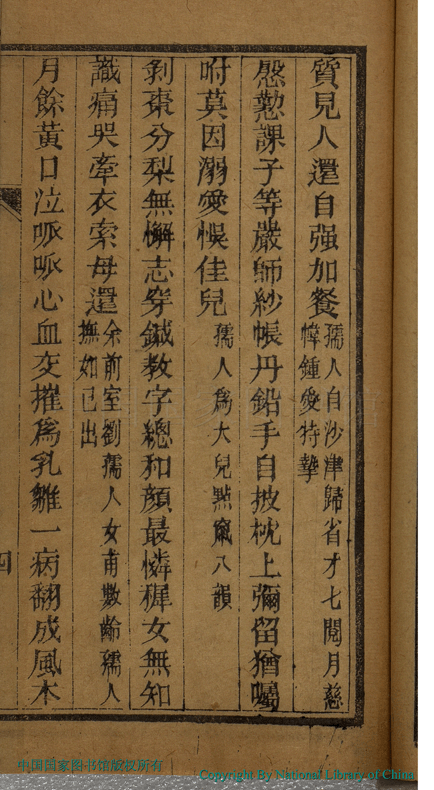 質見人還自强加餐孺人自沙津歸省才七閱月慈
幃鍾愛特摯
慇懃課子等嚴師紗帳丹鉛手自披枕上彌留猶囑
咐莫因溺愛悞佳兒孺人爲大兒點竄八韻
剝棗分梨無懈志穿鍼教字總和顏最憐穉女無知
識痛哭牽衣索母還余前室劉孺人女甫數齡孺人
撫如已出
月餘黃口泣呱呱心血交摧爲乳雛一病翻成風木
四
中国国家图书馆版权所有
Copyright By National Library of China